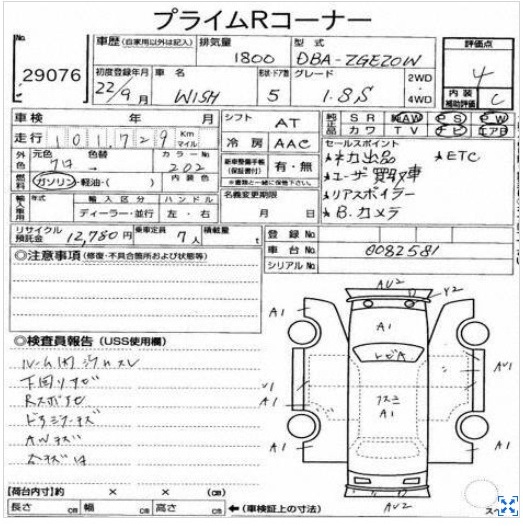 プライムRコーナー
No.
29076
車歴 (自家用以外は記入) 排気量 1800 型式 DBA-ZGE20W
初度登録年月 22/9月 車名 WISH 形状・ドア数 5 グレード 1.8S 2WD・4WD
評価点 4
内装補助評価 C
車検 年 月 シフト AT
走行 101,729 Km マイル 冷房 AAC
純正品 SR AW PS PW
カワ TV ナビ エアB
外色 元色 クロ 色替 カラーNo 202
新車整備手帳(保証書付) 有・無
※書類と一緒に保管下さい。
燃料 ガソリン・軽油・( ) 内装色
輸入車用 年式 輸入区分 ディーラー・並行 ハンドル 左・右
名義変更期限 月 日
セールスポイント
★ネカ出品 ★ETC
★ユーザー買取車
★リアスポイラー
★B.カメラ
リサイクル預託金 12,780円 乗車定員 7人 積載量 t
登録No
車台No 0082581
シリアルNo
◎注意事項 (修復・不具合箇所および状態等)
◎検査員報告 (USS使用欄)
ルーム内
下回りサビ
AWキズ
AU2
Y2
A1
A1
A1
トビA
A1
A1
A1
A1
A1
AU2
【荷台内寸】約 × × (cm)
長さ cm 幅 cm 高さ cm ←(車検証上の寸法)